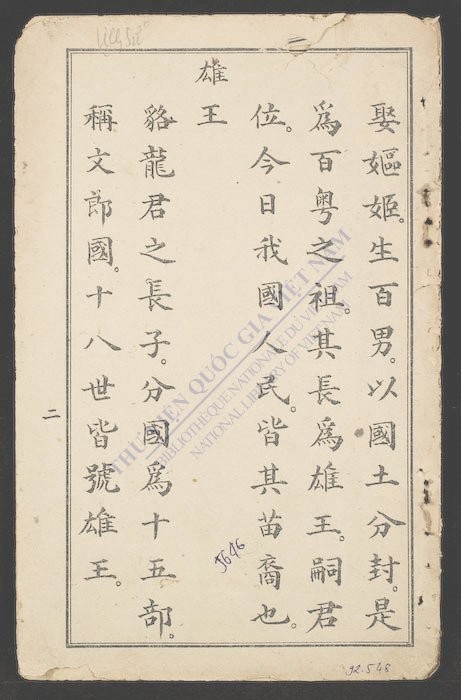 娶嫗姬。生百男。以國土分封。是
爲百粤之祖。其長爲雄王。嗣君
位。今日我國人民。皆其苗裔也。
雄王
貉龍君之長子。分國爲十五部。
稱文郎國。十八世皆號雄王。
二
THƯ VIỆN QUỐC GIA VIỆT NAM
BIBLIOTHÈQUE NATIONALE DU VIETNAM
NATIONAL LIBRARY OF VIETNAM
5646
92.548